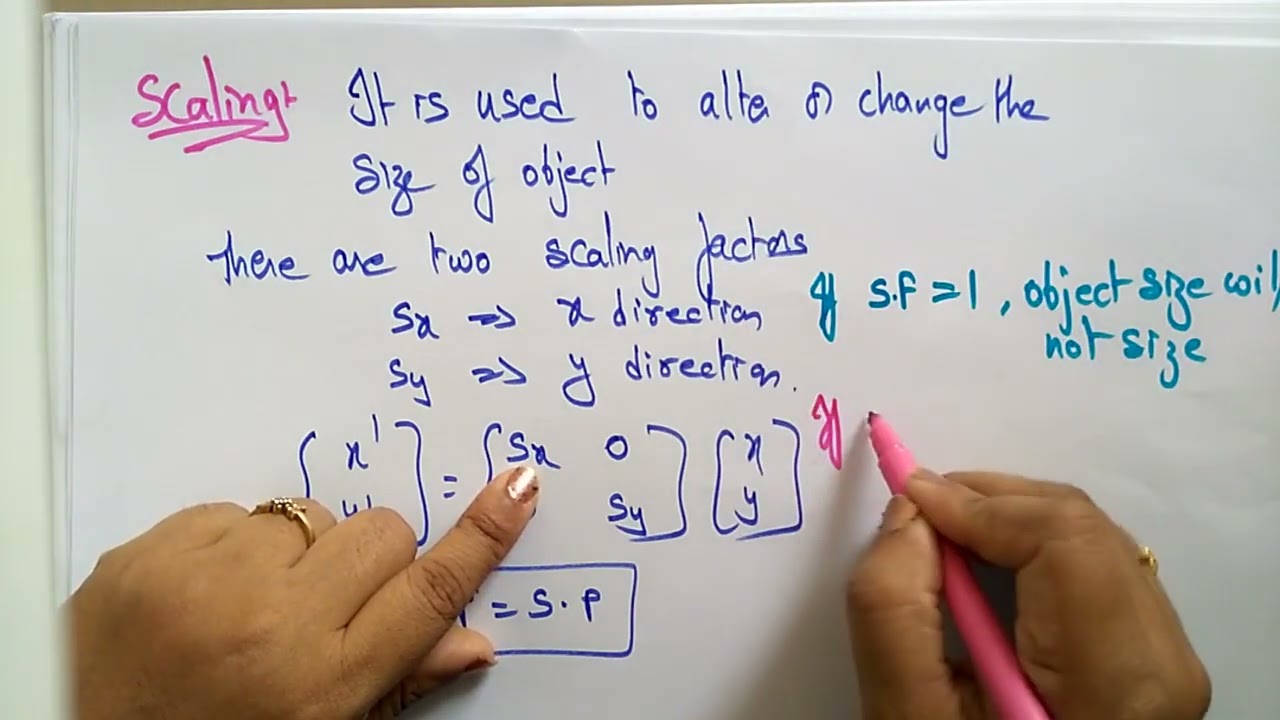 Scaling:- It is used to alter or change the
size of object
There are two scaling factors
Sx => x direction
Sy => y direction.
If S.F = 1, object size will
not size
[x' y'] = [Sx 0 Sy] [x y]
If
= S.P